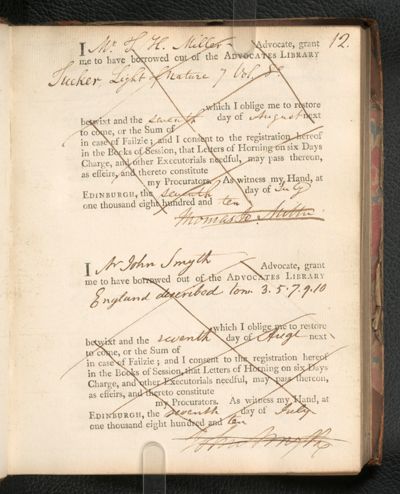 12.
I Mr T. H. Miller Advocate, grant
me to have borrowed out of the ADVOCATES LIBRARY
Tucker Light of Nature 7 Vol. 8o
which I oblige me to restore
betwixt and the seventh day of August next
to come, or the Sum of
in case of Failzie; and I consent to the registration hereof
in the Books of Session, that Letters of Horning on six Days
Charge, and other Executorials needful, may pass thereon,
as effeirs, and thereto constitute
my Procurators. As witness my Hand, at
EDINBURGH, the seventh day of July
one thousand eight hundred and ten
Thomas H. Miller
I Mr John Smyth Advocate, grant
me to have borrowed out of the ADVOCATES LIBRARY
England described tom. 3. 5. 7. 9. 10
which I oblige me to restore
betwixt and the seventh day of Augt next
to come, or the Sum of
in case of Failzie; and I consent to the registration hereof
in the Books of Session, that Letters of Horning on six Days
Charge, and other Executorials needful, may pass thereon,
as effeirs, and thereto constitute
my Procurators. As witness my Hand, at
EDINBURGH, the seventh day of July
one thousand eight hundred and ten
John Smyth